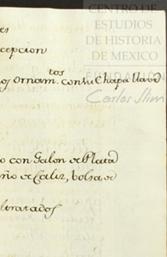 CENTRO DE
ESTUDIOS
DE HISTORIA
DE MEXICO
Carlos Slim
cepcion
tos
os ornam. con su chapa llave
o con Galon de Plata
ño de Caliz, bolsa de